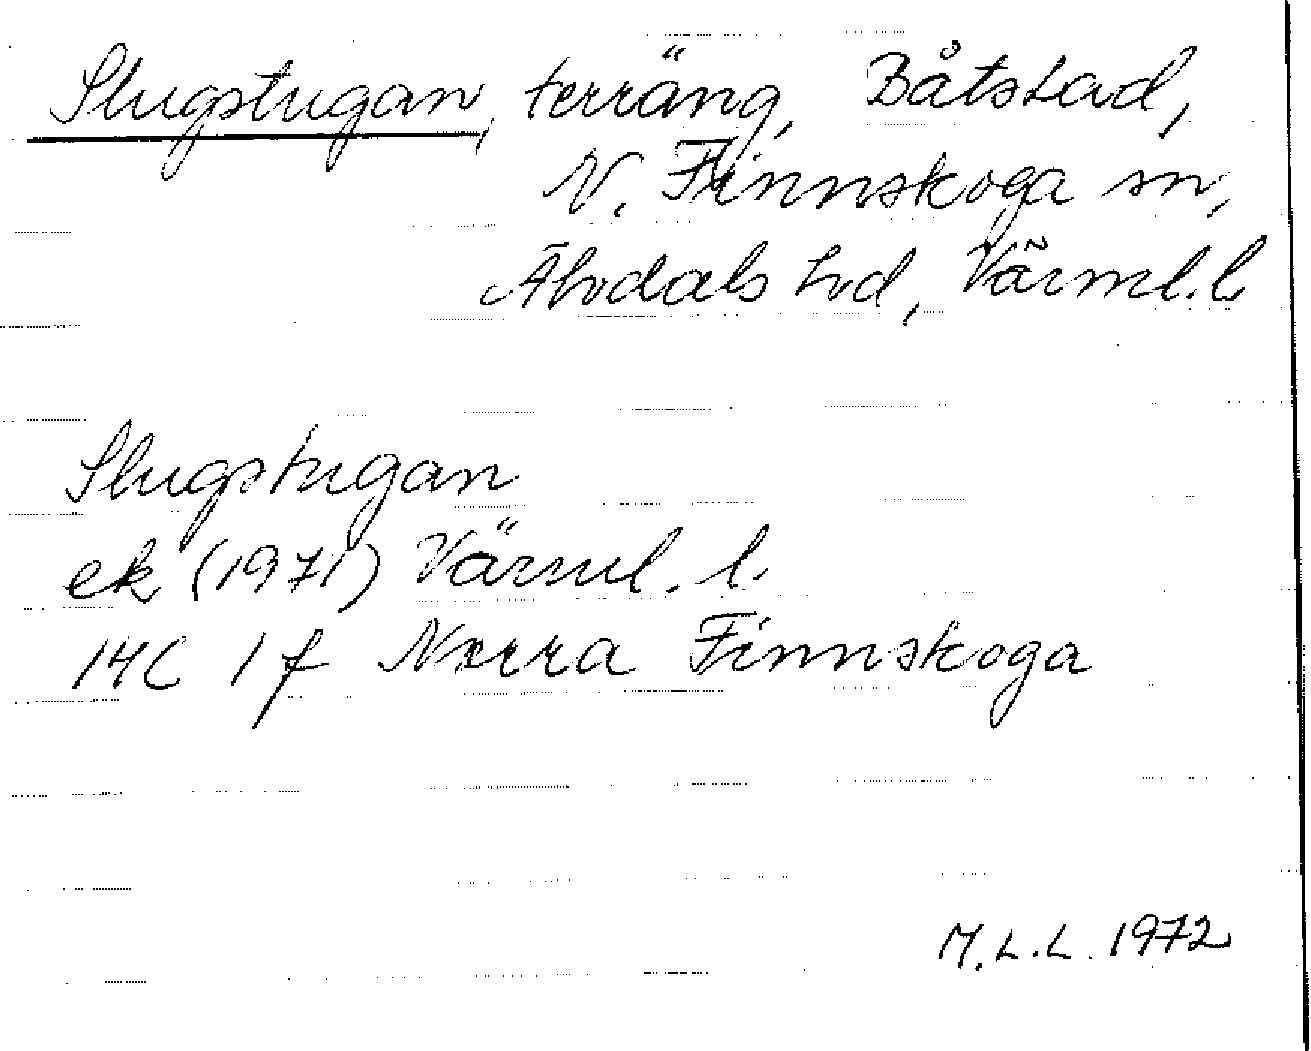 Slugstugan, terräng, Båtstad,
N. Finnskoga sn,
Älvdals hd, Värml. l.
Slugstugan
ek (1971) Värml. l.
14C 1f Norra Finnskoga
M.L.L. 1972